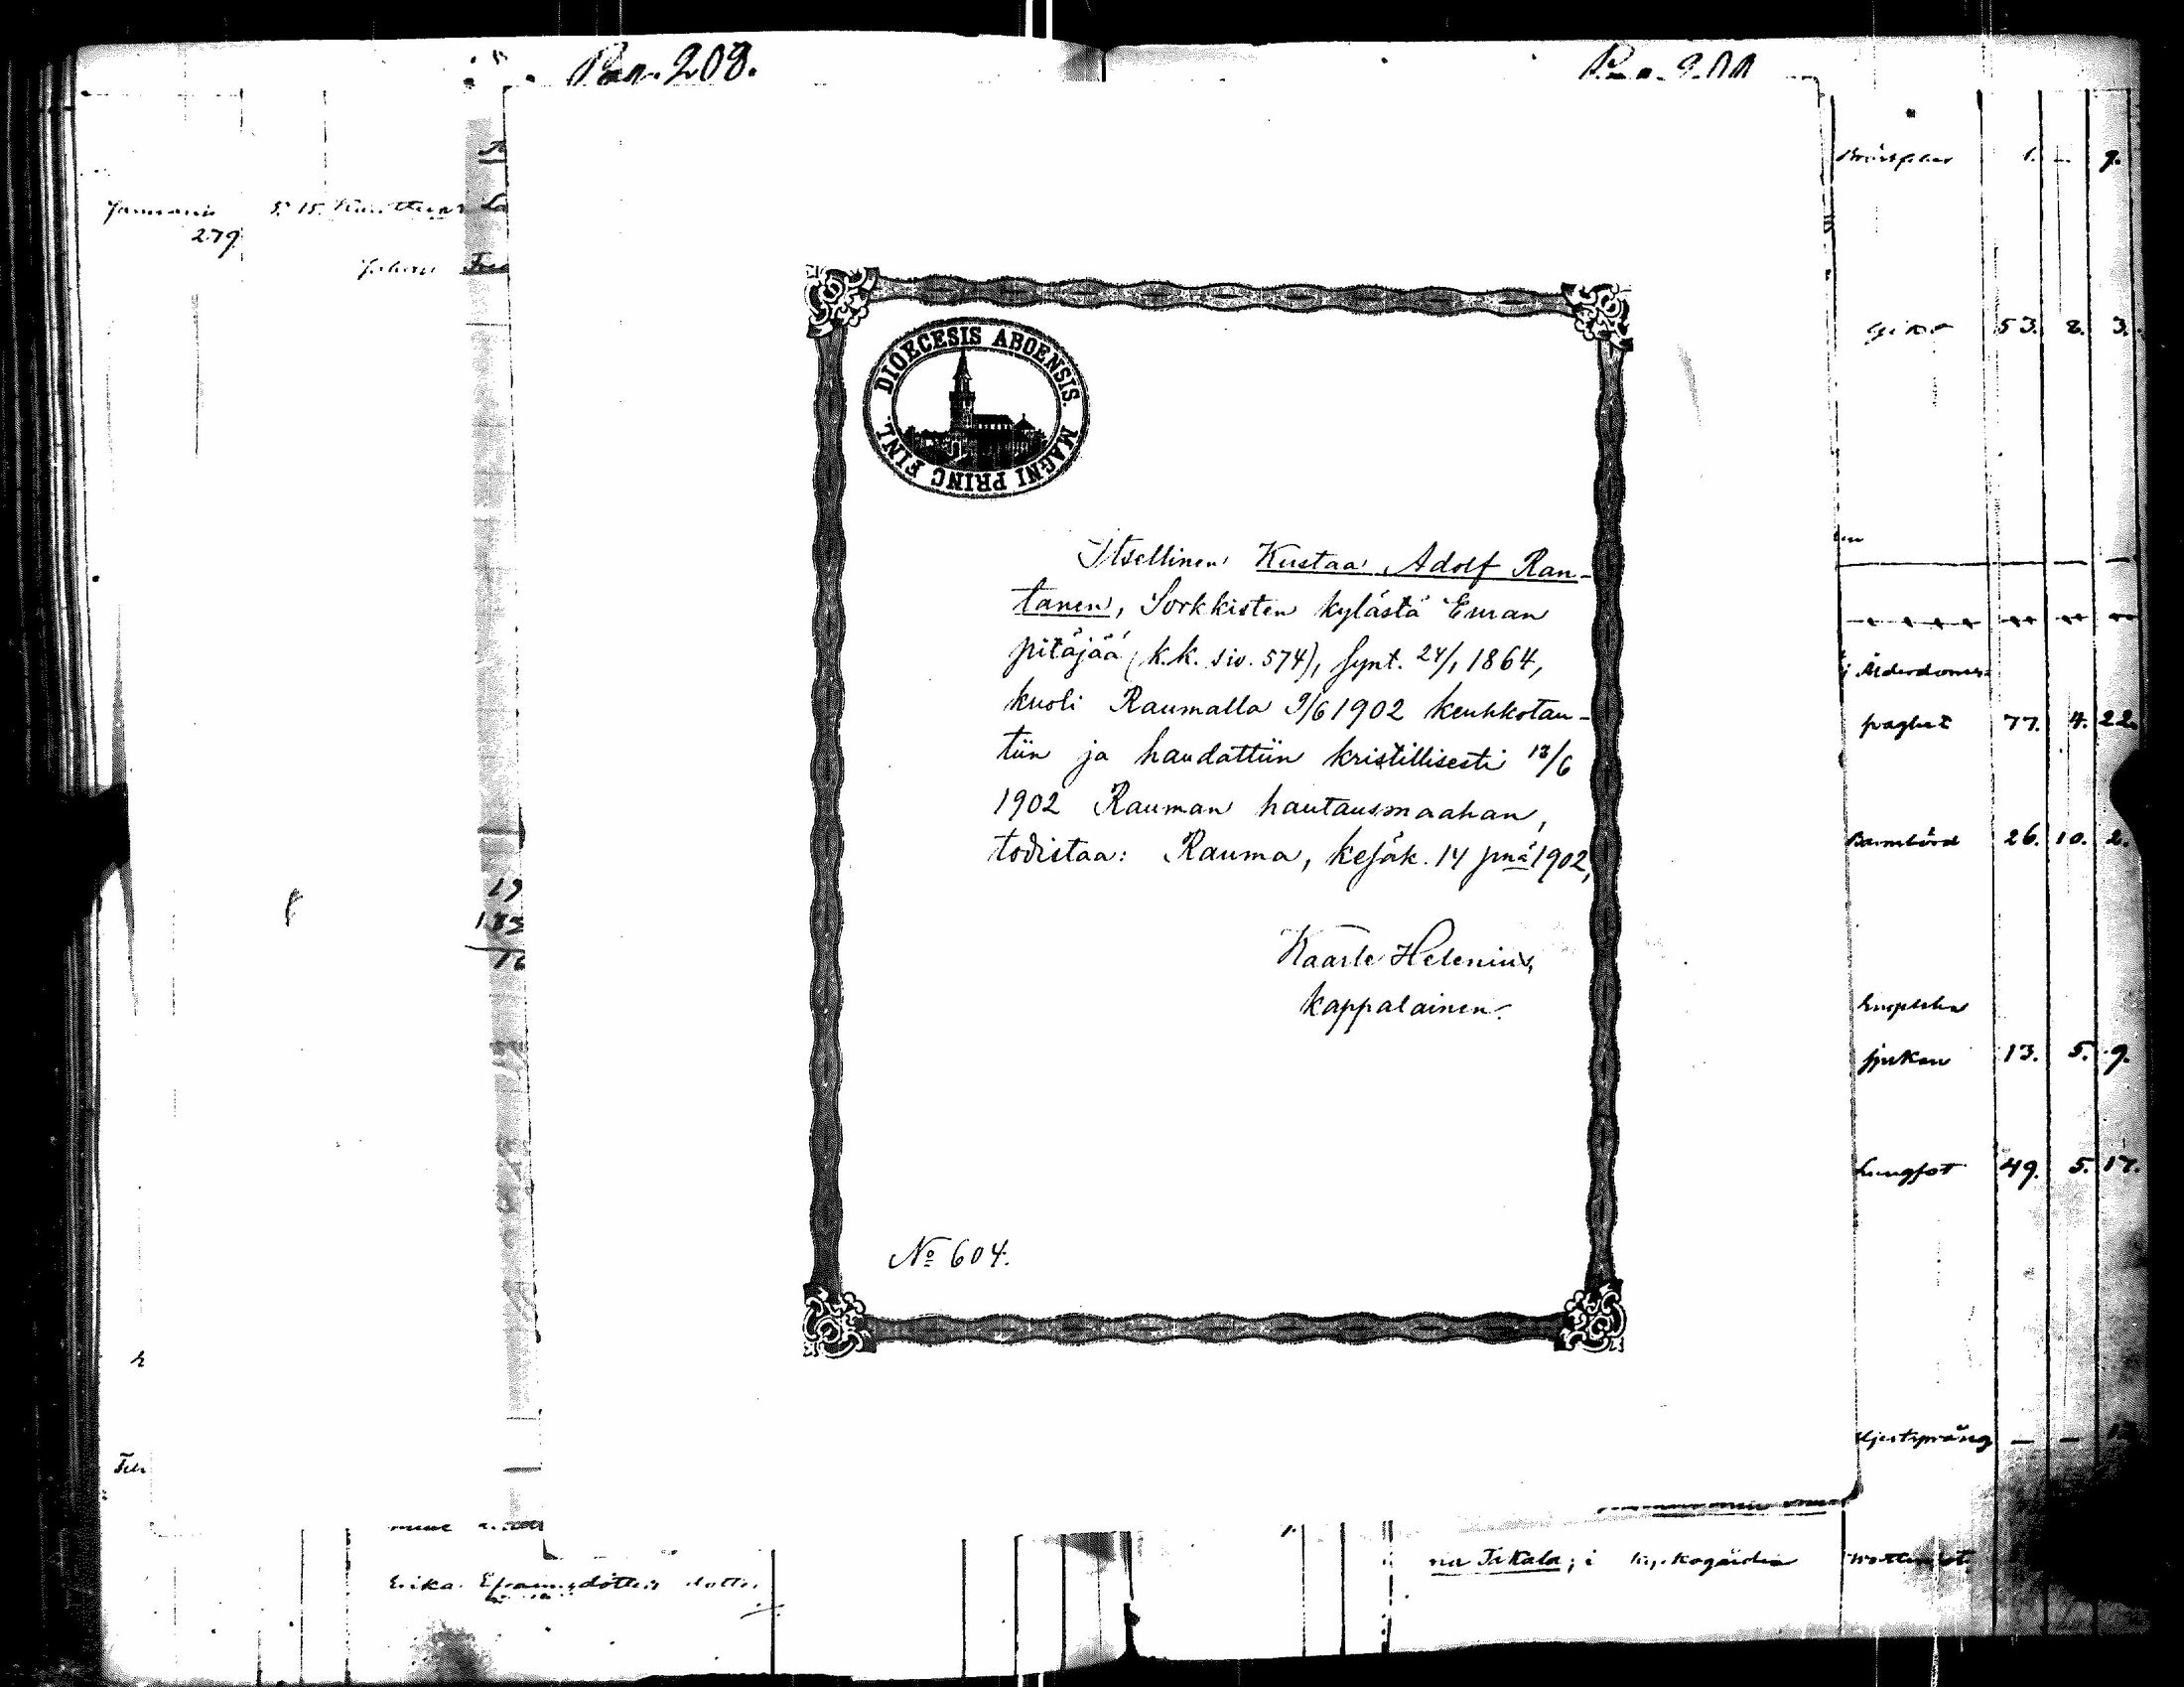 Pag. 208.
Januarii
279.
DIOECESIS ABOENSIS. MAGNI PRINC FINL.
Itsellinen Kustaa Adolf Ran-
tanen, Sorkkisten kylästä Euran
pitäjää (k.k. siv. 574), synt. 24/1 1864,
kuoli Raumalla 9/6 1902 keuhkotau-
tiin ja haudattiin kristillisesti 13/6
1902 Rauman hautausmaahan,
todistaa: Rauma, kesäk. 14 pnä 1902,
Kaarle Helenius,
kappalainen.
No 604.
1. 9.
53. 2. 3.
i Ålderdoms-
77. 4. 22.
Barnbörd 26. 10. 2.
13. 5. 9.
Lungsot 49. 5. 17.
Erika
na Takala; i